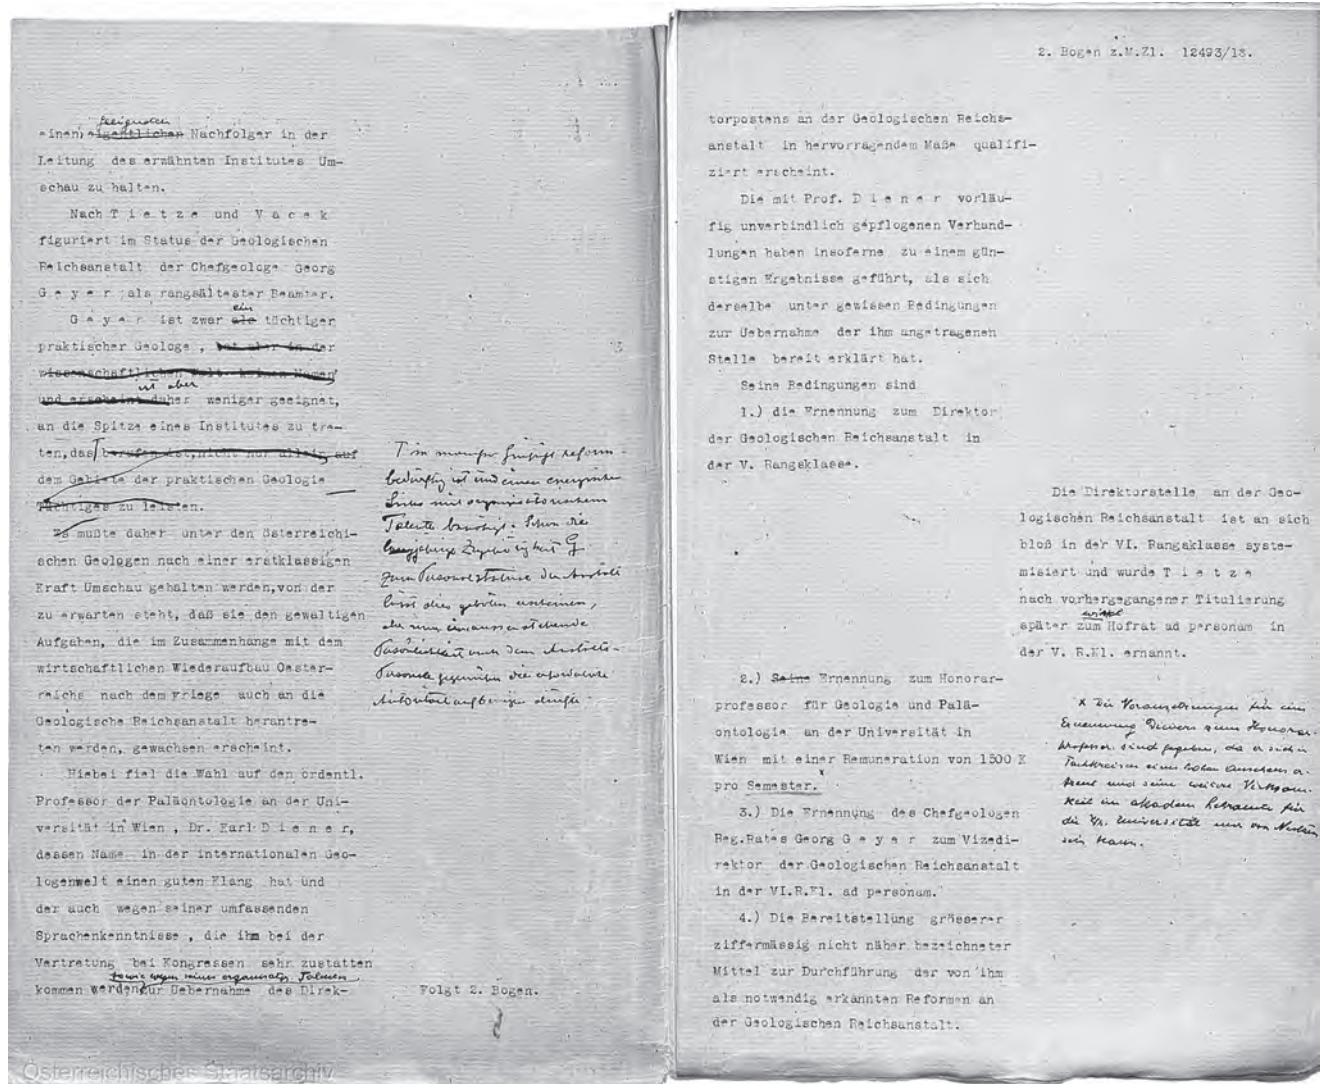 geeigneten
einen eigentlichen Nachfolger in der
Leitung des erwähnten Institutes Um-
schau zu halten.
Nach T i e t z e und V a c e k
figuriert im Status der Geologischen
Reichsanstalt der Chefgeologe Georg
G e y e r als rangsältester Beamter.
ein
G e y e r ist zwar als tüchtiger
praktischer Geologe , hat aber in der
wissenschaftlichen Welt keinen Namen
ist aber
und erscheint daher weniger geeignet,
an die Spitze eines Institutes zu tre-
ten,das berufen ist,nicht nur allein auf
dem Gebiete der praktischen Geologie
Tüchtiges zu leisten.
Es mußte daher unter den österreichi-
schen Geologen nach einer erstklassigen
Kraft Umschau gehalten werden,von der
zu erwarten steht, daß sie den gewaltigen
Aufgaben, die im Zusammenhange mit dem
wirtschaftlichen Wiederaufbau Oester-
reichs nach dem Kriege auch an die
Geologische Reichsanstalt herantre-
ten werden, gewachsen erscheint.
Hiebei fiel die Wahl auf den ordentl.
Professor der Paläontologie an der Uni-
versität in Wien , Dr. Karl D i e n e r,
dessen Name in der internationalen Geo-
logenwelt einen guten Klang hat und
der auch wegen seiner umfassenden
Sprachenkenntnisse , die ihm bei der
Vertretung bei Kongressen sehr zustatten
sowie wegen seines organisator. Talentes
kommen werden,zur Uebernahme des Direk-
in mancher Hinsicht reform-
bedürftig ist und einen energischen
Leiter mit organisatorischem
Talente benötigt. Schon die
langjährige Zugehörigkeit G
zum Personalstatus der Anstalt
lässt dies geboten erscheinen,
da nur eine aussenstehende
Persönlichkeit auch dem Anstalts-
Personale gegenüber die erforderliche
Autorität aufbringen dürfte
Folgt 2. Bogen.
2. Bogen z.M.Zl. 12493/18.
torpostens an der Geologischen Reichs-
anstalt in hervorragendem Maße qualifi-
ziert erscheint.
Die mit Prof. D i e n e r vorläu-
fig unverbindlich gepflogenen Verhand-
lungen haben insoferne zu einem gün-
stigen Ergebnisse geführt, als sich
derselbe unter gewissen Bedingungen
zur Uebernahme der ihm angetragenen
Stelle bereit erklärt hat.
Seine Bedingungen sind
1.) die Ernennung zum Direktor
der Geologischen Reichsanstalt in
der V. Rangsklasse.
Die Direktorstelle an der Geo-
logischen Reichsanstalt ist an sich
bloß in der VI. Rangsklasse syste-
misiert und wurde T i e t z e
nach vorhergegangener Titulierung
wirkl
später zum Hofrat ad personam in
der V. R.Kl. ernannt.
2.) Seine Ernennung zum Honorar-
professor für Geologie und Palä-
ontologie an der Universität in
Wien mit einer Remuneration von 1500 K
x
pro Semester.
3.) Die Ernennung des Chefgeologen
Reg.Rates Georg G e y e r zum Vizedi-
rektor der Geologischen Reichsanstalt
in der VI.R.Kl. ad personam.
4.) Die Bereitstellung grösserer
ziffermässig nicht näher bezeichneter
Mittel zur Durchführung der von ihm
als notwendig erkannten Reformen an
der Geologischen Reichsanstalt.
x Die Voraussetzungen für eine
Ernennung Dieners zum Honorar-
professor sind gegeben, da er sich in
Fachkreisen eines hohen Ansehens er-
freut und seine weitere Wirksam-
keit im akadem Lehramte für
die Universität nur von Nutzen
sein kann.
Österreichisches Staatsarchiv